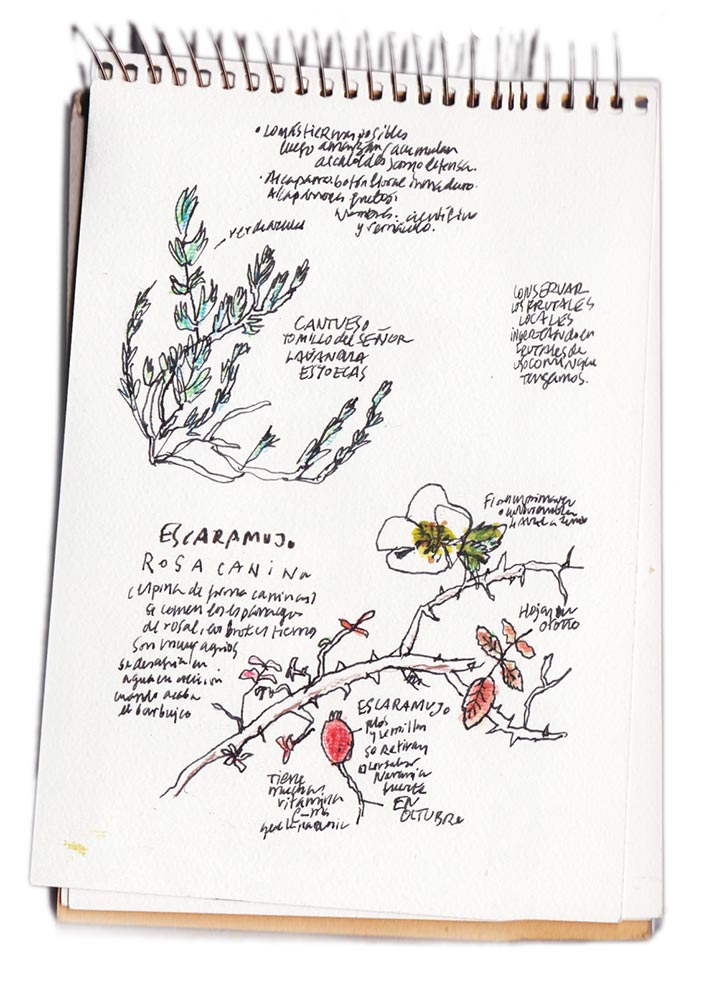 • Lo más tiernas posibles
luego amargan/acumulan
alcaloides como defensa.
• Alcaparra: botón floral inmaduro.
Alcaparrones frutos.
Nombres: científico
y vernáculo.
verdeazul
CANTUESO
TOMILLO del SEÑOR
LAVANDULA
ESTOECAS
CONSERVAR
LOS FRUTALES
LOCALES
injERTANDO en
FRUTALES de
USO COMÚN que
TENgAMOS.
ESCARAMUJO
ROSA CANINA
(Espina de forma caninas)
Se comen los espárragos
de rosal, los brotes tiernos
son muy agrios
en
agua en
cuando acaba
el barbujeo
Flor en primavera
Hojas en
otoño
ESCARAMUJO
pelos
y semillas
SE RETIRAN
sabor
Naranja
fuerte
EN
OCTUBRE
Tiene
muchas
vitamina
C - más
que la naranja